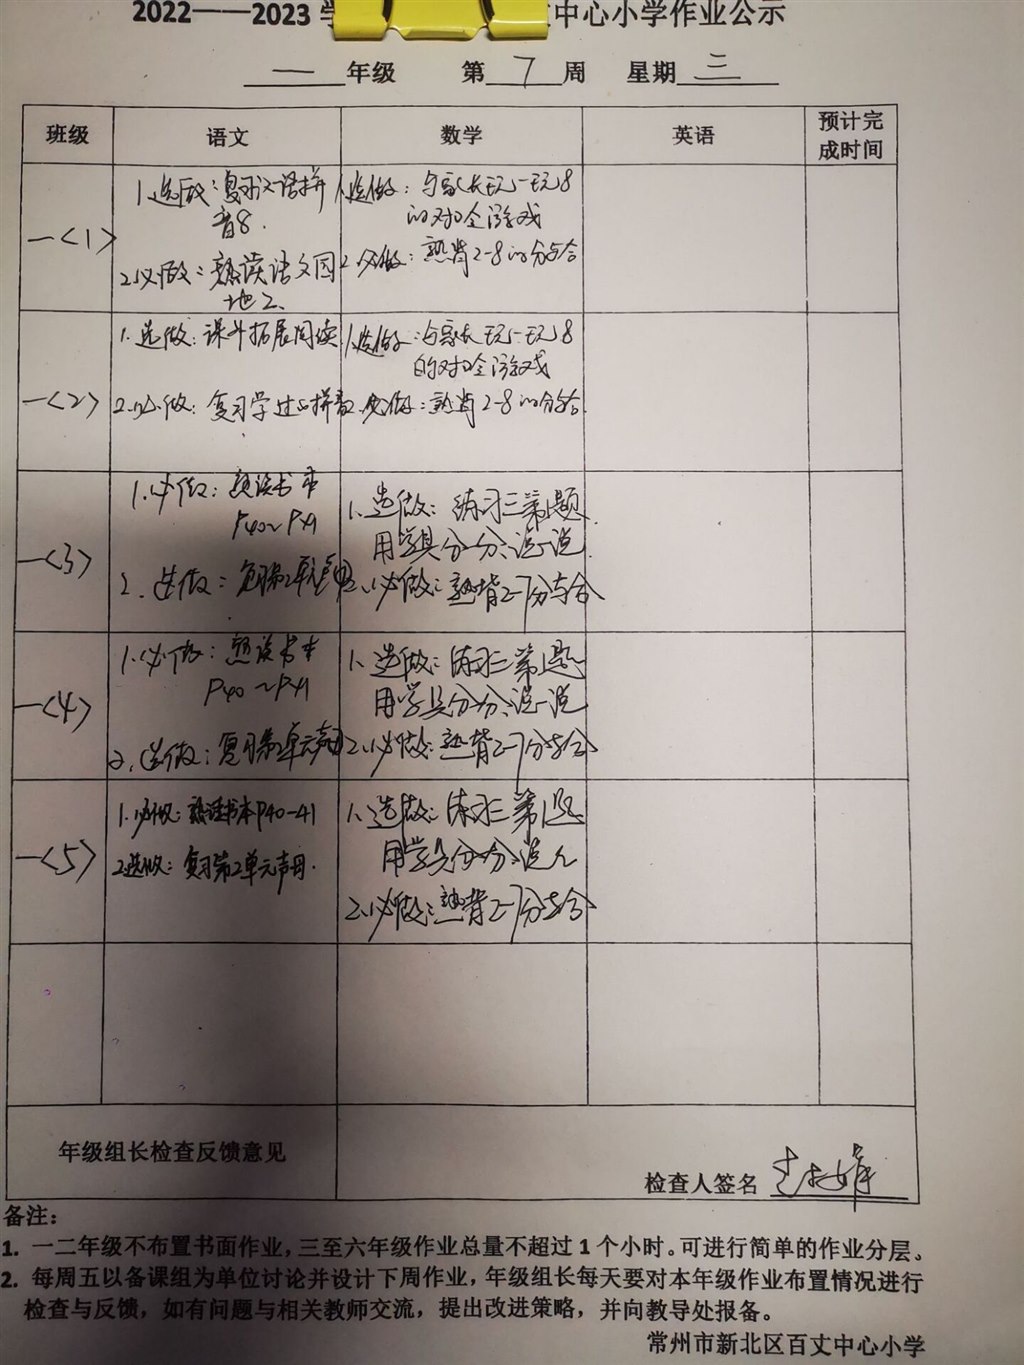 2022——2023 学
中心小学作业公示
一 年级 第 7 周 星期 三
班级 语文 数学 英语 预计完成时间
一<1>
1.选做:复习汉语拼
音8.
2.必做:熟读语文园
地2.
1.选做:与家长玩一玩8
的对口令游戏
2.必做:熟背2-8的分与合
一<2>
1.选做:课外拓展阅读
2.必做:复习学过的拼音
1.选做:与家长玩一玩8
的对口令游戏
2.必做:熟背2-8的分与合.
一<3>
1.必做:熟读书本
P40~P41
2.选做:复习第2单元声母
1.选做:练习三第1题.
用学具分一分、说一说.
2.必做:熟背2-7分与合
一<4>
1.必做:熟读书本
P40~P41
2.选做:复习第2单元声母
1.选做:练习三第1题
用学具分一分、说一说
2.必做:熟背2-7分与合
一<5>
1.必做:熟读书本P40-41
2.选做:复习第2单元声母.
1.选做:练习三第1题
用学具分一分、说
2.必做:熟背2-7分与合
年级组长检查反馈意见
检查人签名
备注:
1. 一二年级不布置书面作业,三至六年级作业总量不超过1个小时。可进行简单的作业分层。
2. 每周五以备课组为单位讨论并设计下周作业,年级组长每天要对本年级作业布置情况进行
检查与反馈,如有问题与相关教师交流,提出改进策略,并向教导处报备。
常州市新北区百丈中心小学